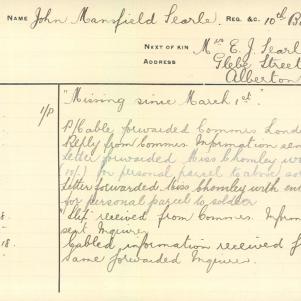 NAME John Mansfield Searle. REG. &C. 10th B
NEXT OF KIN Mrs E. J. Searl
ADDRESS Glebe Street
Alberton
"Missing since March 1st."
1/P
P/Cable forwarded Commrs Lond
Reply from Commrs. Information sen
Letter forwarded Miss Chomley wi
10/-) for personal parcel to above so
Letter forwarded Miss Chomley with en
for personal parcel to soldier
8. Slip received from Commrs. Inform
sent Inquirer
18. Cabled information received f
Same forwarded Inquirer.